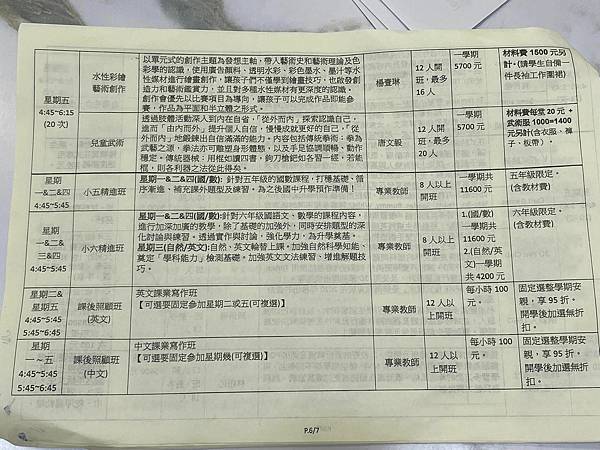 星期五
4:45~6:15
(20 次)
水性彩繪
藝術創作
以單元式的創作主題為發想主軸，帶入藝術史和藝術理論及色
彩學的認識，使用廣告顏料、透明水彩、彩色墨水、墨汁等水
性媒材進行繪畫創作，讓孩子們不僅學到繪畫技巧，也啟發創
造力和藝術鑑賞力，並且對多種水性媒材有更深度的認識。
創作會優先以比賽項目為導向，讓孩子可以完成作品即能參
賽，作品為平面和半立體之形式。
楊壹琳
12 人
開班，最多
16 人
一學期
5700 元
材料費 1500 元另
計。(請學生自備一
件長袖工作圍裙)
兒童武術
透過肢體活動深入到內在自省，「從外而內」探索認識自己，
進而「由內而外」提升個人自信，慢慢成就更好的自己，「從
外而內」地鍛鍊出自信滿滿的能力。內容包括傳統拳術：拳為
武藝之源，拳法亦可雕塑身形體態，以及手足協調順暢，動作
穩定。傳統器械：用棍如讀四書，鉤刀槍鈀如各習一經，若能
棍，則各利器之法從此得矣。
唐文毅
12 人
開班，最多
20 人
一學期
5700 元
材料費每堂 20 元 +
武術服 1000=1400
元另計(含衣服、褲
子、板帶)。
星期
一&二&四
4:45~5:45
小五精進班
星期一&二&四(國/數): 針對五年級的國數課程，打穩基礎、循
序漸進、補充課外題型及練習，為之後國中升學預作準備！
專業教師
8 人以上
開班
一學期共
11600 元
五年級限定。
(含教材費)
星期
一&二&
三&四
4:45~5:45
小六精進班
星期一&二&四(國/數):針對六年級國語文、數學的課程內容，
進行加深加廣的教學，除了基礎的加強外，同時安排題型的深
化討論與練習。透過實作與討論，強化學力，為升學奠基。
星期三(自然/英文):自然、英文輪替上課。加強自然科學知能、
奠定「學科能力」檢測基礎。加強英文文法練習、增進解題技
巧。
專業教師
8 人以上
開班
1.(國/數)
一學期共
11600 元
2.(自然/英
文)一學期
共 4200 元
六年級限定。
(含教材費)
星期二&
星期五
4:45~5:45
5:45~6:45
課後照顧班
(英文)
英文課業寫作班
【可選要固定參加星期二或五(可複選)】
專業教師
12 人以
上開班
每小時 100
元。
固定選整學期安
親，享 95 折。
開學後加選無折
扣。
星期
一 ~ 五
4:45~5:45
5:45~6:45
課後照顧班
(中文)
中文課業寫作班
【可選要固定參加星期幾(可複選)】
專業教師
12 人以
上開班
每小時 100
元。
固定選整學期安
親，享 95 折。
開學後加選無折
扣。
P.6/7